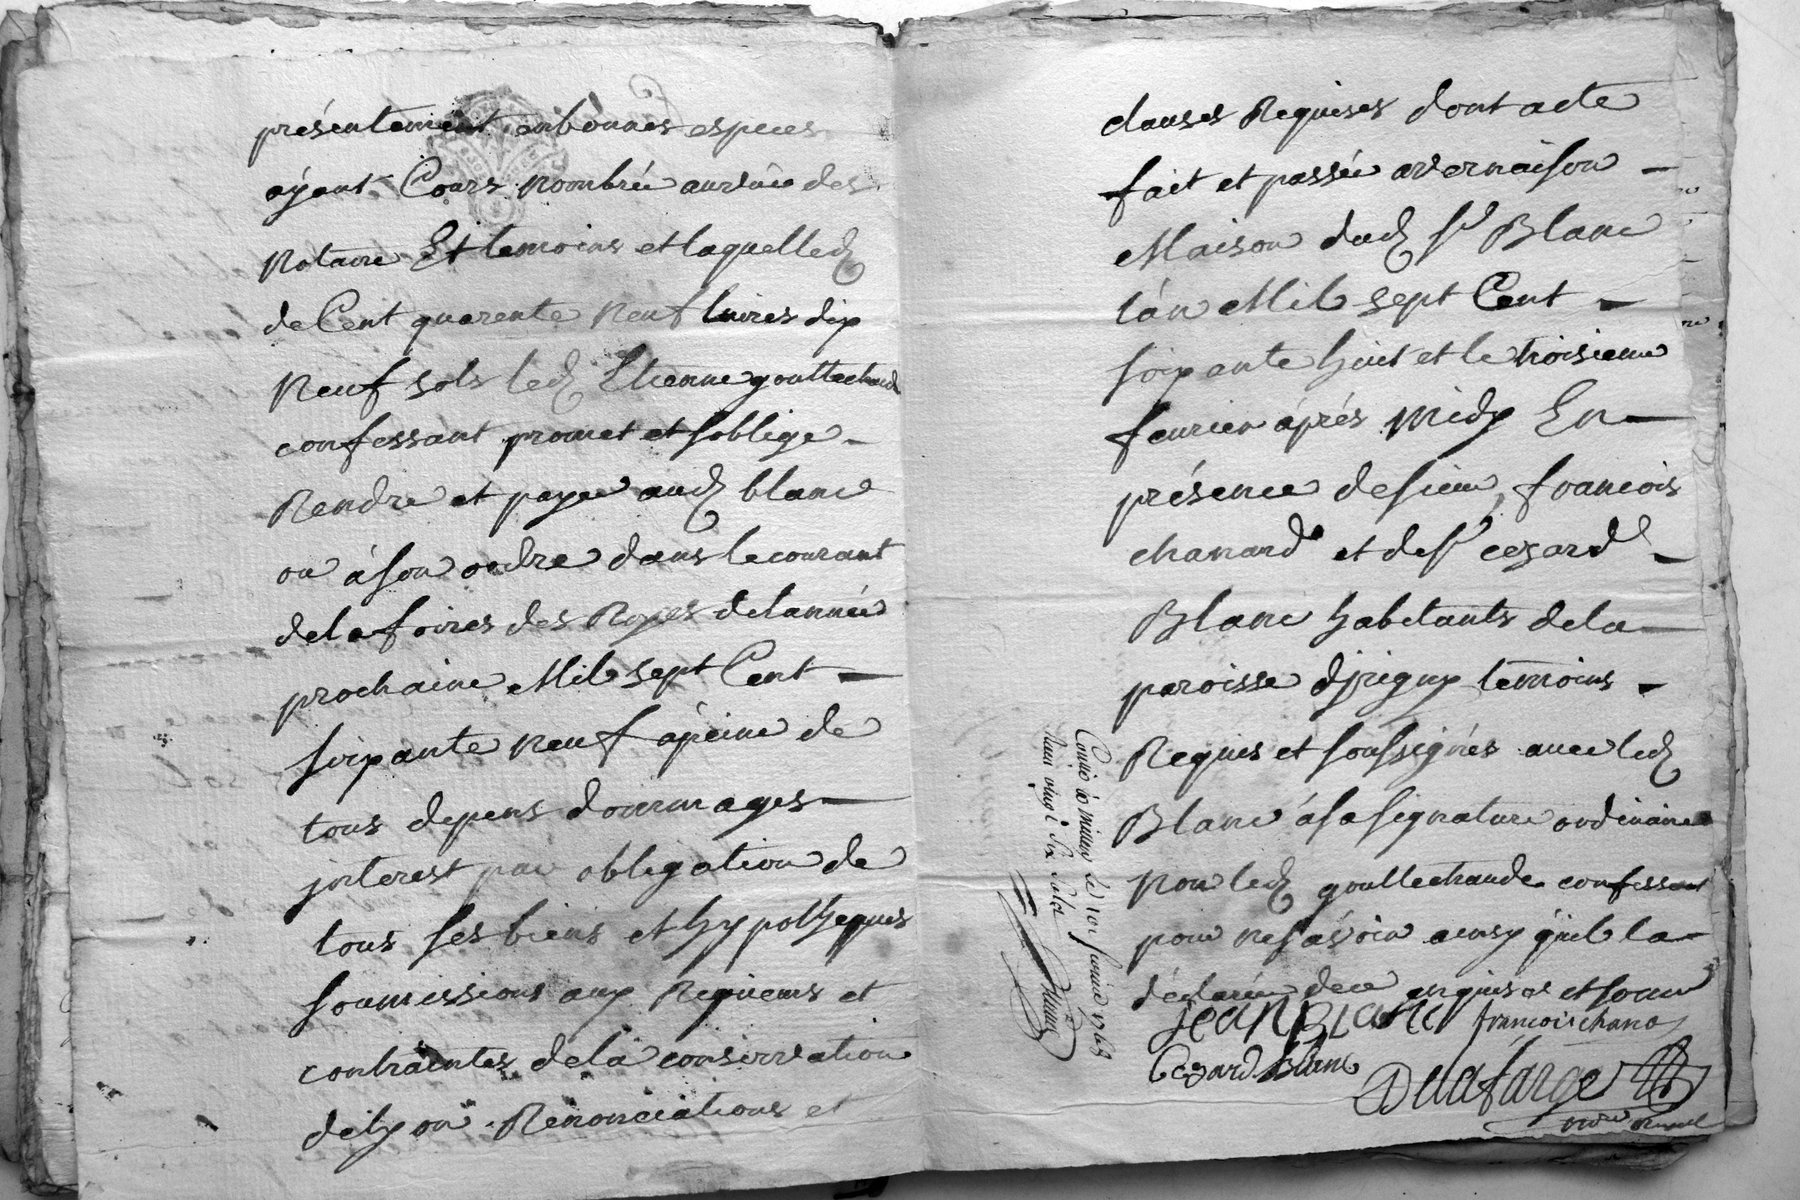 présentement en bonnes especes
ayant Cours nombrée au vüe des
Notaire Et temoins et laquelle
de Cent quarente neuf livres dix
neuf sols led Etienne gouttechaude
confessant promet et soblige
Rendre et payer aud blanc
ou à son ordre dans le courant
de la foires des Royes de lannée
prochaine Mil sept Cent
soixante neuf à peine de
tous depens dommages
jnterest par obligation de
tous ses biens et hypotheques
soumissions aux Rigueurs et
contraintes de la conservation
de lyon Renonciations et
clauses Requises dont acte
fait et passée a vernaison
Maison dud sr Blanc
làn Mil sept Cent
soixante huit et le troisieme
feurier àprés midy En
présence de sieur françois
chanard et de sr cezard
Blanc habitants de la
paroisse djrigny temoins
Requis et soussignés avec led
Blanc à sa signature ordinaire
Non led gouttechaude confessant
pour ne sávoir ainsy quil la
déclarée de ce enquis et somé
JEAN BLANC françois chanard
Cezard Blanc
Delafarge
Conlé à le 10e feurier 1768
vingt six sols